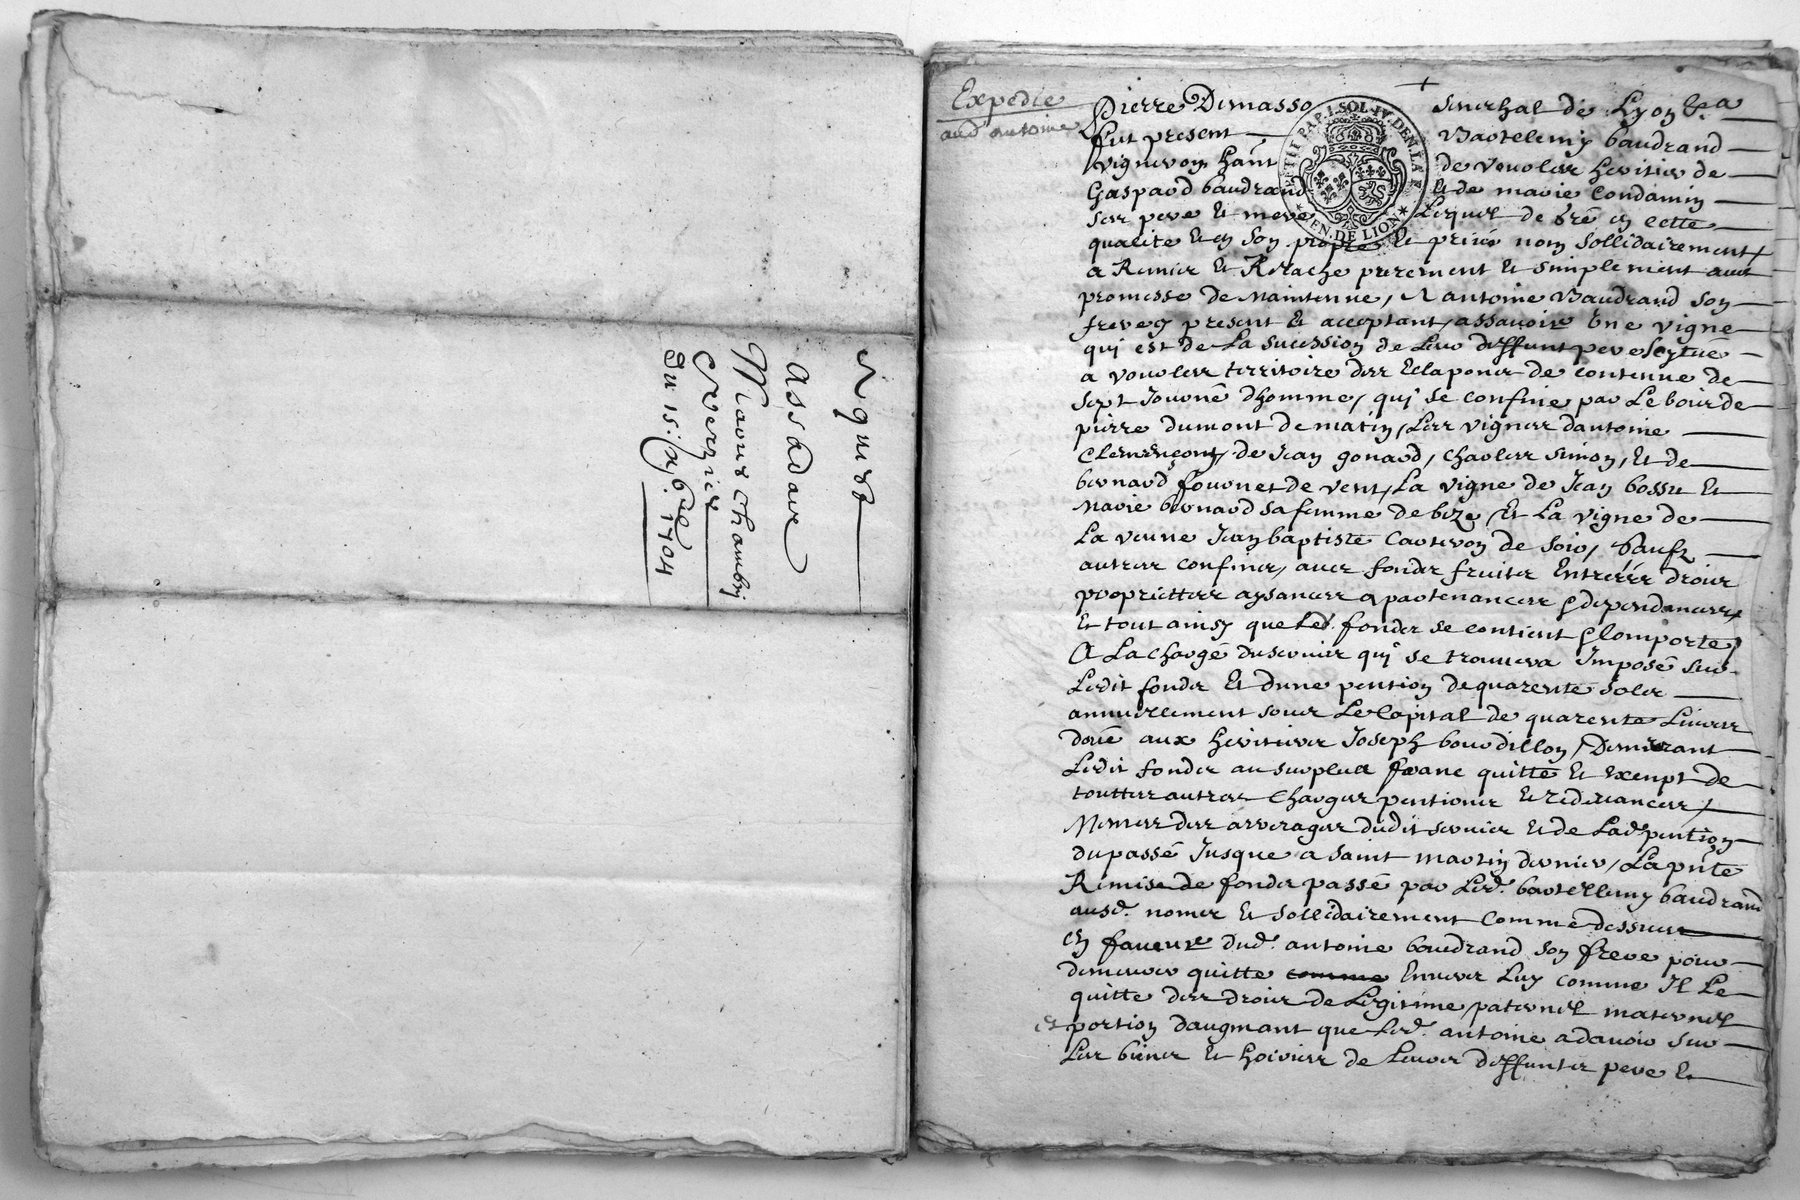 Aquest
assadave
Marous Chamby
Cverzier
Du 15: xbre 1704
Expedie
aud antoine
Pierre Demasso senechal de Lyon &a
fut present Bartelemy baudrand
vigneron hant de Vourler heritier de
Gaspard baudrand Et de marie Condamin
ses pere et mere Lequel de gré en cette
qualite et en son propre et privé nom sollidairement
a Remier et Relache purement et simplement avec
promesse de maintenue, A antoine Baudrand son
frere present et acceptant, assavoir Une vigne
qui est de La sucession de Leur deffunt pere scytuée
a vourler territoire des Eclaponer de contenue de
sept Journé dhomme, qui se confine par Le bois de
pierre dumont de matin, Les vignes dantoine
Clemençont, de Jean gonard, charler simon, Et de
bernard fournet de vent, La vigne de Jean bossu Et
Marie bernard sa femme de bize, Et La vigne de
La veuve Jean baptiste Carteron de soir, sauf
autres confiner, avec fonder fruiter Entréés droier
proprietter aysancer apartenancer & dependancer
Et tout ainsy que Led. fonder se contient & comporte
A La charge du servier qui se trouvera Imposé sur
Ledit fonder Et dune pention de quarente soler
annuellement sous Le Capital de quarente Livres
doüé aux heritier Joseph bourdillon, Demeurant
Ledit fonder au surplus franc quitte Et exempt de
touttes autres charger pentioner Et redevancer,
Memes des arrerages dudit servier et de Lad. pention
du passé Jusque a saint martin dernier, La pnte
Remise de fonder passé par Led. bartellemy baudrand
ausd. nomer Et sollidairement Comme dessus
En faveure dud. antoine baudrand son frere pour
demeurer quitte comme Enver Luy comme Il Le
quitte des droier de Legitime paternel maternel
et portion daugmant que Led. antoine a davoir sur
Les biener Et hoirier de Leurer deffunter pere Et
PETIT PAP. 1. SOL. IV. DEN. LA F.
GEN. DE LION